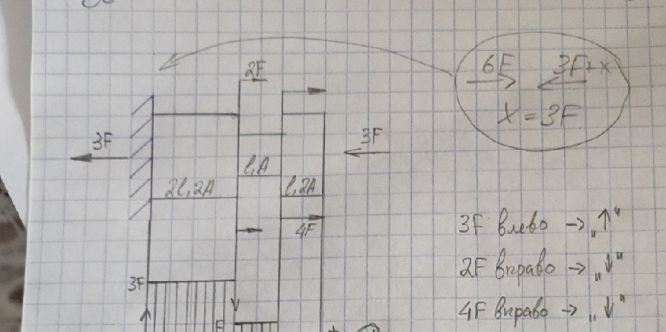 6F 3F+x
x = 3F
2F
3F
3F
l,A
2l,2A
l,2A
4F
3F влево → „↑“
2F вправо → „↓“
3F
4F вправо → „↓“
F